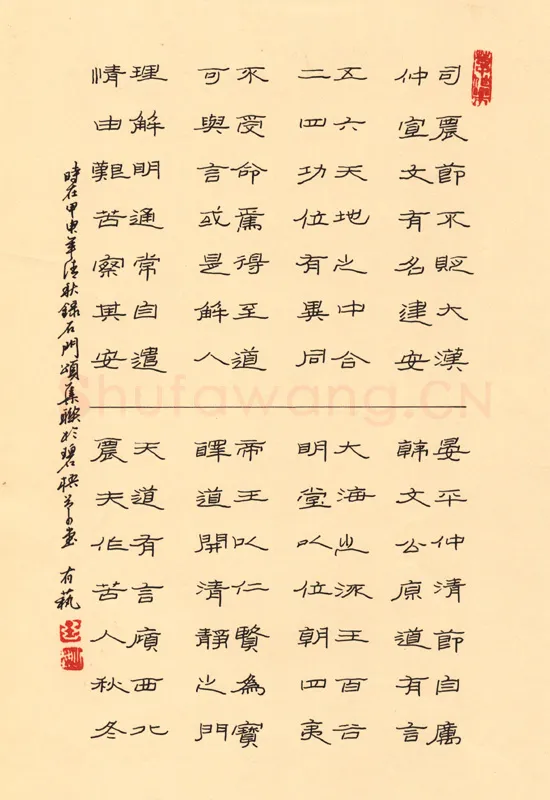 司農節不貶大漢
仲宣文有名建安
五六天地之中合
二四功位有異同
不受命焉得至道
可與言或是解人
理解明通常自遣
情由艱苦察其安
晏平仲清節自厲
韓文公原道有言
大海之深王百谷
明堂以位朝四夷
帝王以仁賢為寶
暉道開清靜之門
天道有言顧西北
農夫作苦人秋冬
時在甲申年清秋錄石門頌集聯於碧草堂 有藝
Shufawang.CN